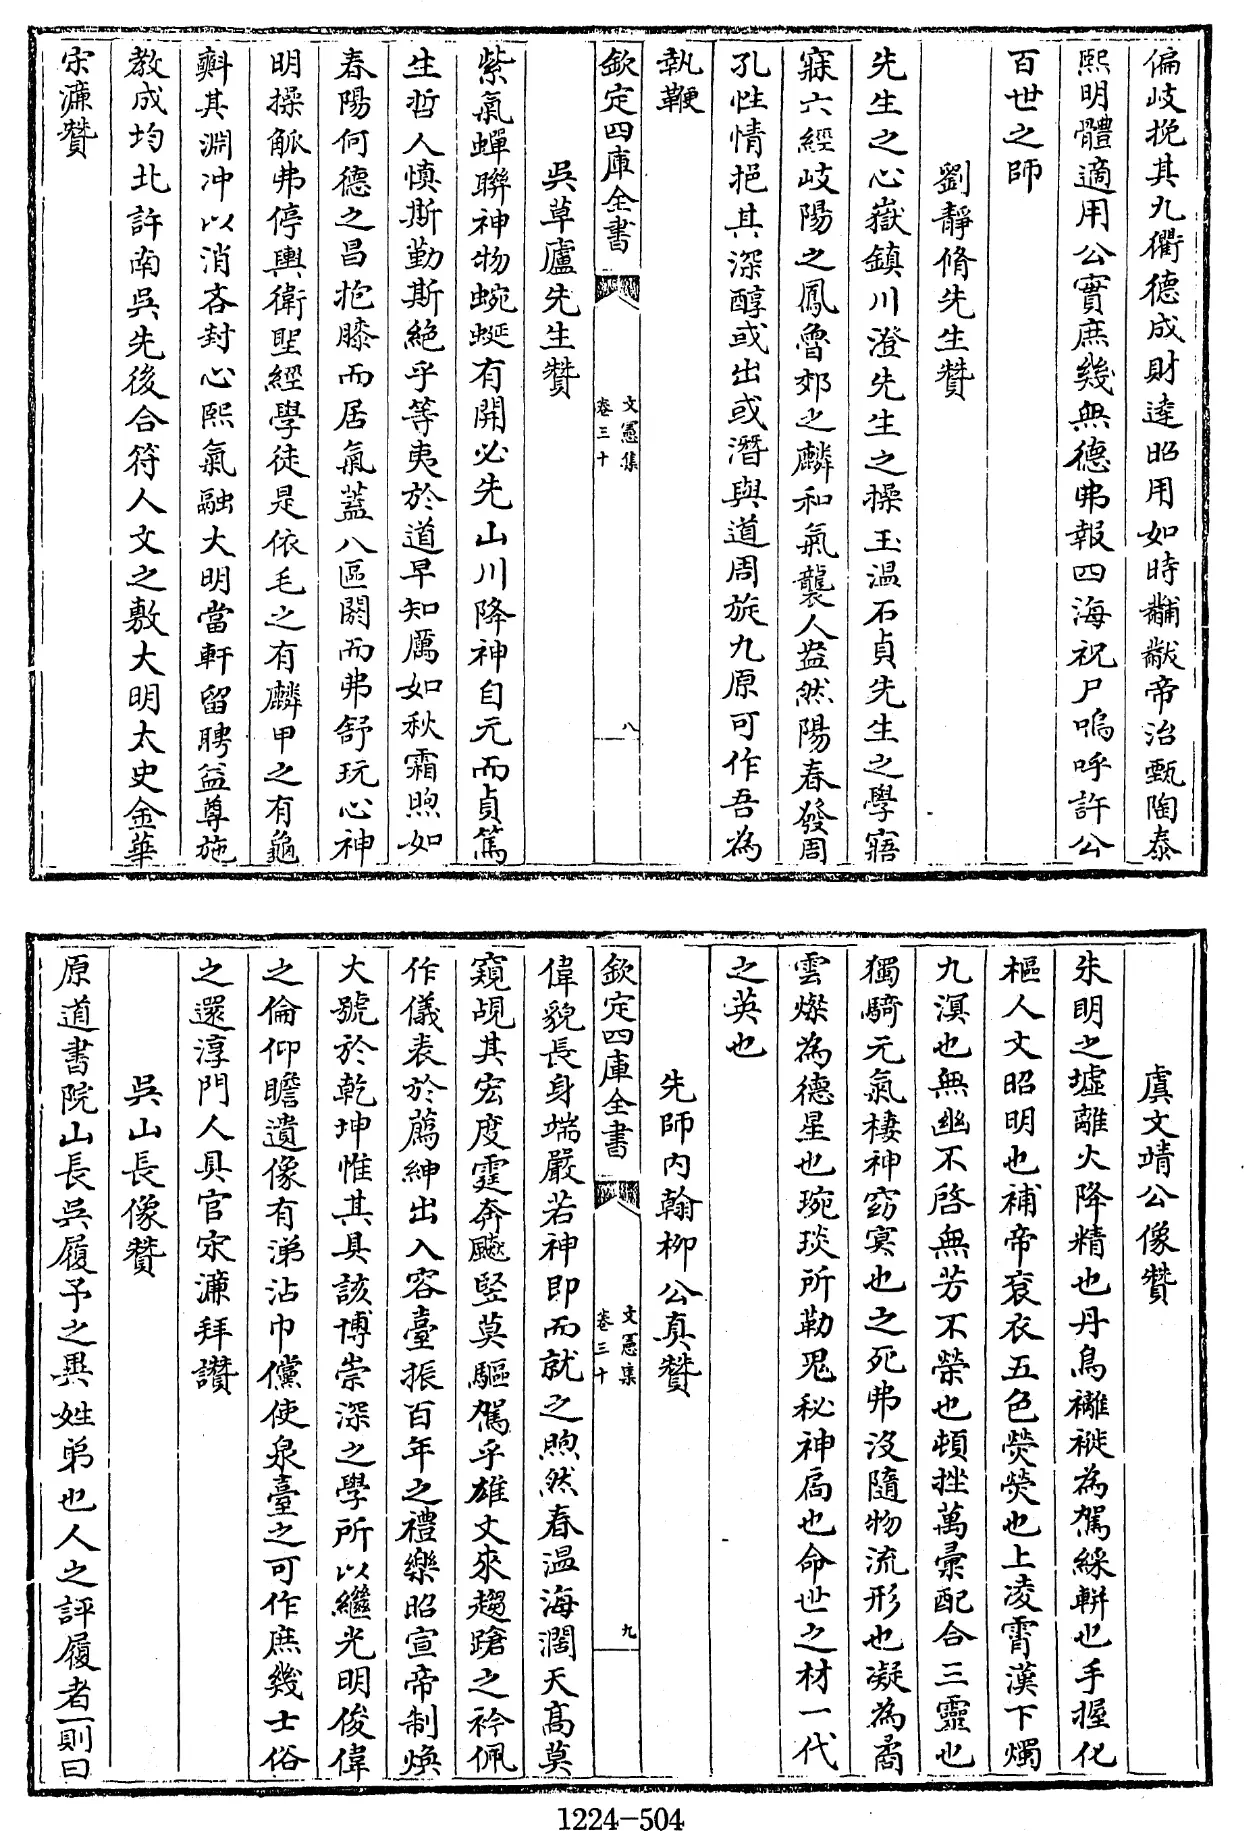 偏岐挽其九衢德成財達昭用如時黼黻帝治甄陶泰
熙明體適用公實庶幾無德弗報四海祝尸嗚呼許公
百世之師
劉靜脩先生贊
先生之心嶽鎮川澄先生之操玉溫石貞先生之學寤
寐六經岐陽之鳳魯郊之麟和氣襲人盎然陽春發周
孔性情挹其深醇或出或潛與道周旋九原可作吾為
執鞭
欽定四庫全書
文憲集
卷三十
八
吳草廬先生贊
紫氣蟬聯神物蜿蜒有開必先山川降神自元而貞篤
生哲人慎斯勤斯絕乎等夷於道早知厲如秋霜煦如
春陽何德之昌抱膝而居氣蓋八區閟而弗舒玩心神
明操觚弗停輿衛聖經學徒是依毛之有麟甲之有龜
㪺其淵冲以消吝封心熙氣融大明當軒留聘益尊施
教成均北許南吳先後合符人文之敷大明太史金華
宋濂贊
虞文靖公像贊
朱明之墟離火降精也丹鳥褵褷為駕綵輧也手握化
樞人文昭明也補帝袞衣五色熒熒也上凌霄漢下燭
九溟也無幽不啓無芳不榮也頓挫萬彙配合三靈也
獨騎元氣棲神窈冥也之死弗沒隨物流形也凝為矞
雲燦為德星也琬琰所勒鬼秘神扃也命世之材一代
之英也
先師內翰柳公真贊
欽定四庫全書
文憲集
卷三十
九
偉貌長身端嚴若神即而就之煦然春溫海濶天高莫
窺覘其宏度霆奔飇竪莫驅駕乎雄文來趨蹌之衿佩
作儀表於薦紳出入容臺振百年之禮樂昭宣帝制煥
大號於乾坤惟其具該博崇深之學所以繼光明俊偉
之倫仰瞻遺像有涕沾巾儻使泉臺之可作庶幾士俗
之還淳門人具官宋濂拜讚
吳山長像贊
原道書院山長吳履予之異姓弟也人之評履者一則曰
1224-504